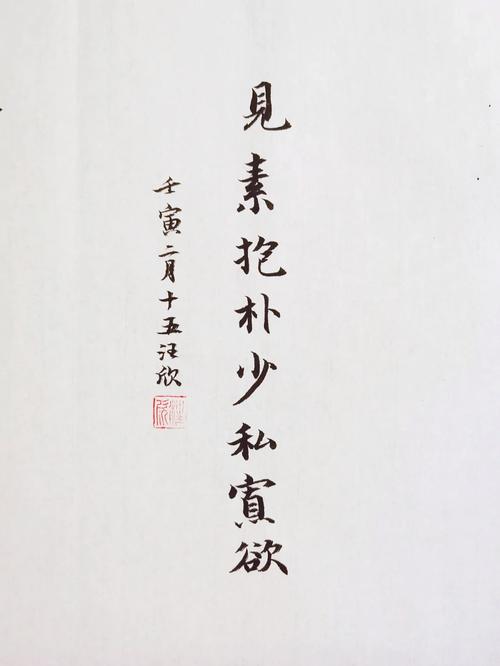 見素抱朴少私寡欲
壬寅二月十五汪欣